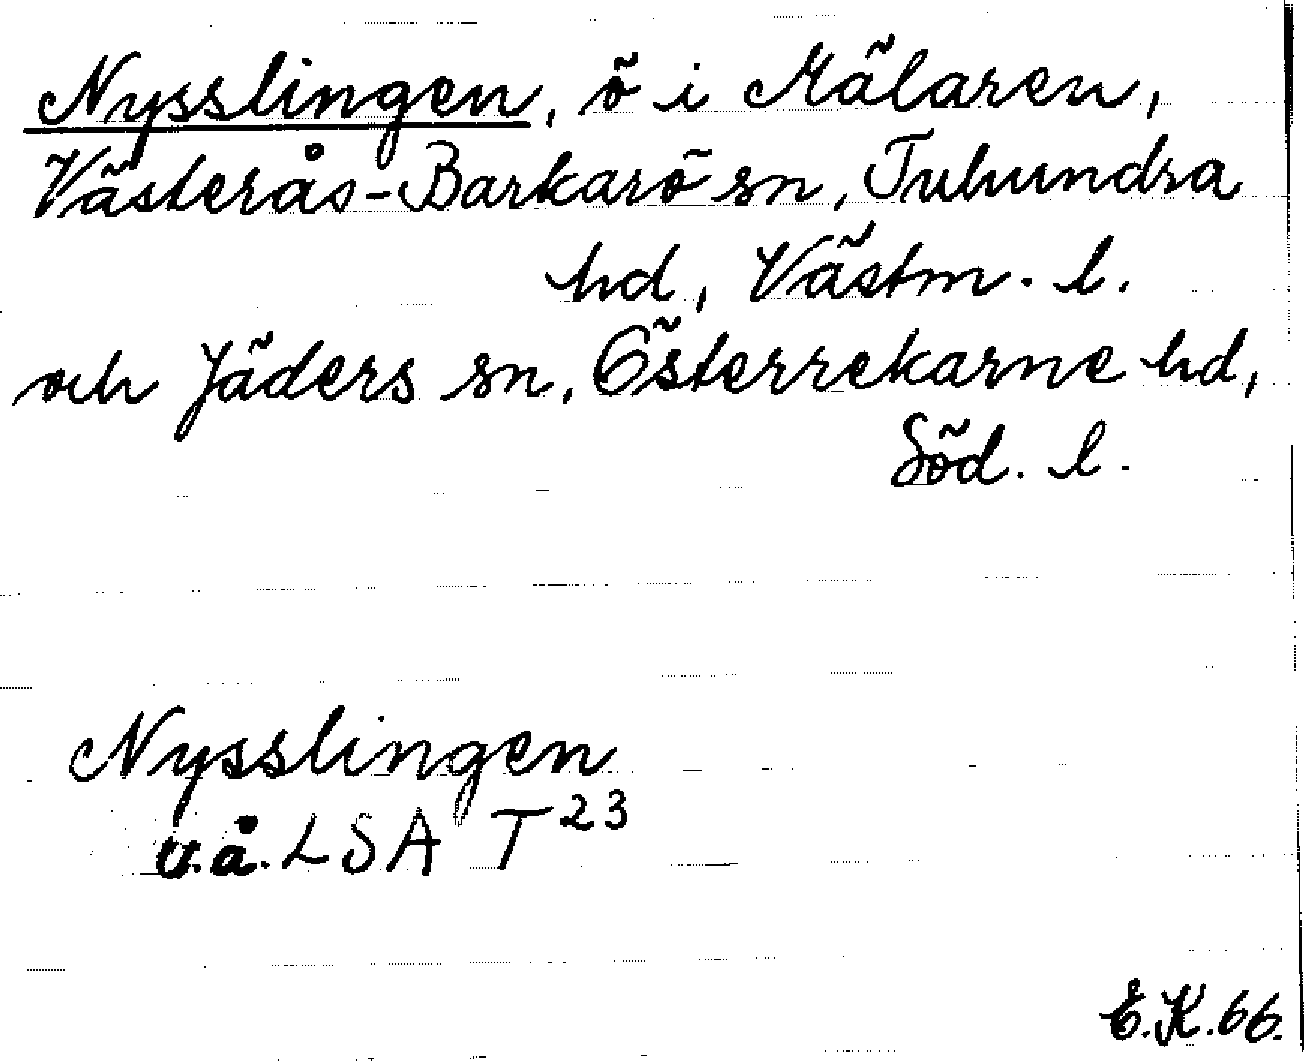 Nysslingen, ö i Mälaren,
Västerås-Barkarö sn, Tuhundra
hd, Västm. l.
och Jäders sn, Österrekarne hd,
Söd. l.
Nysslingen
u.å. LSA T 23
E.K. 66.